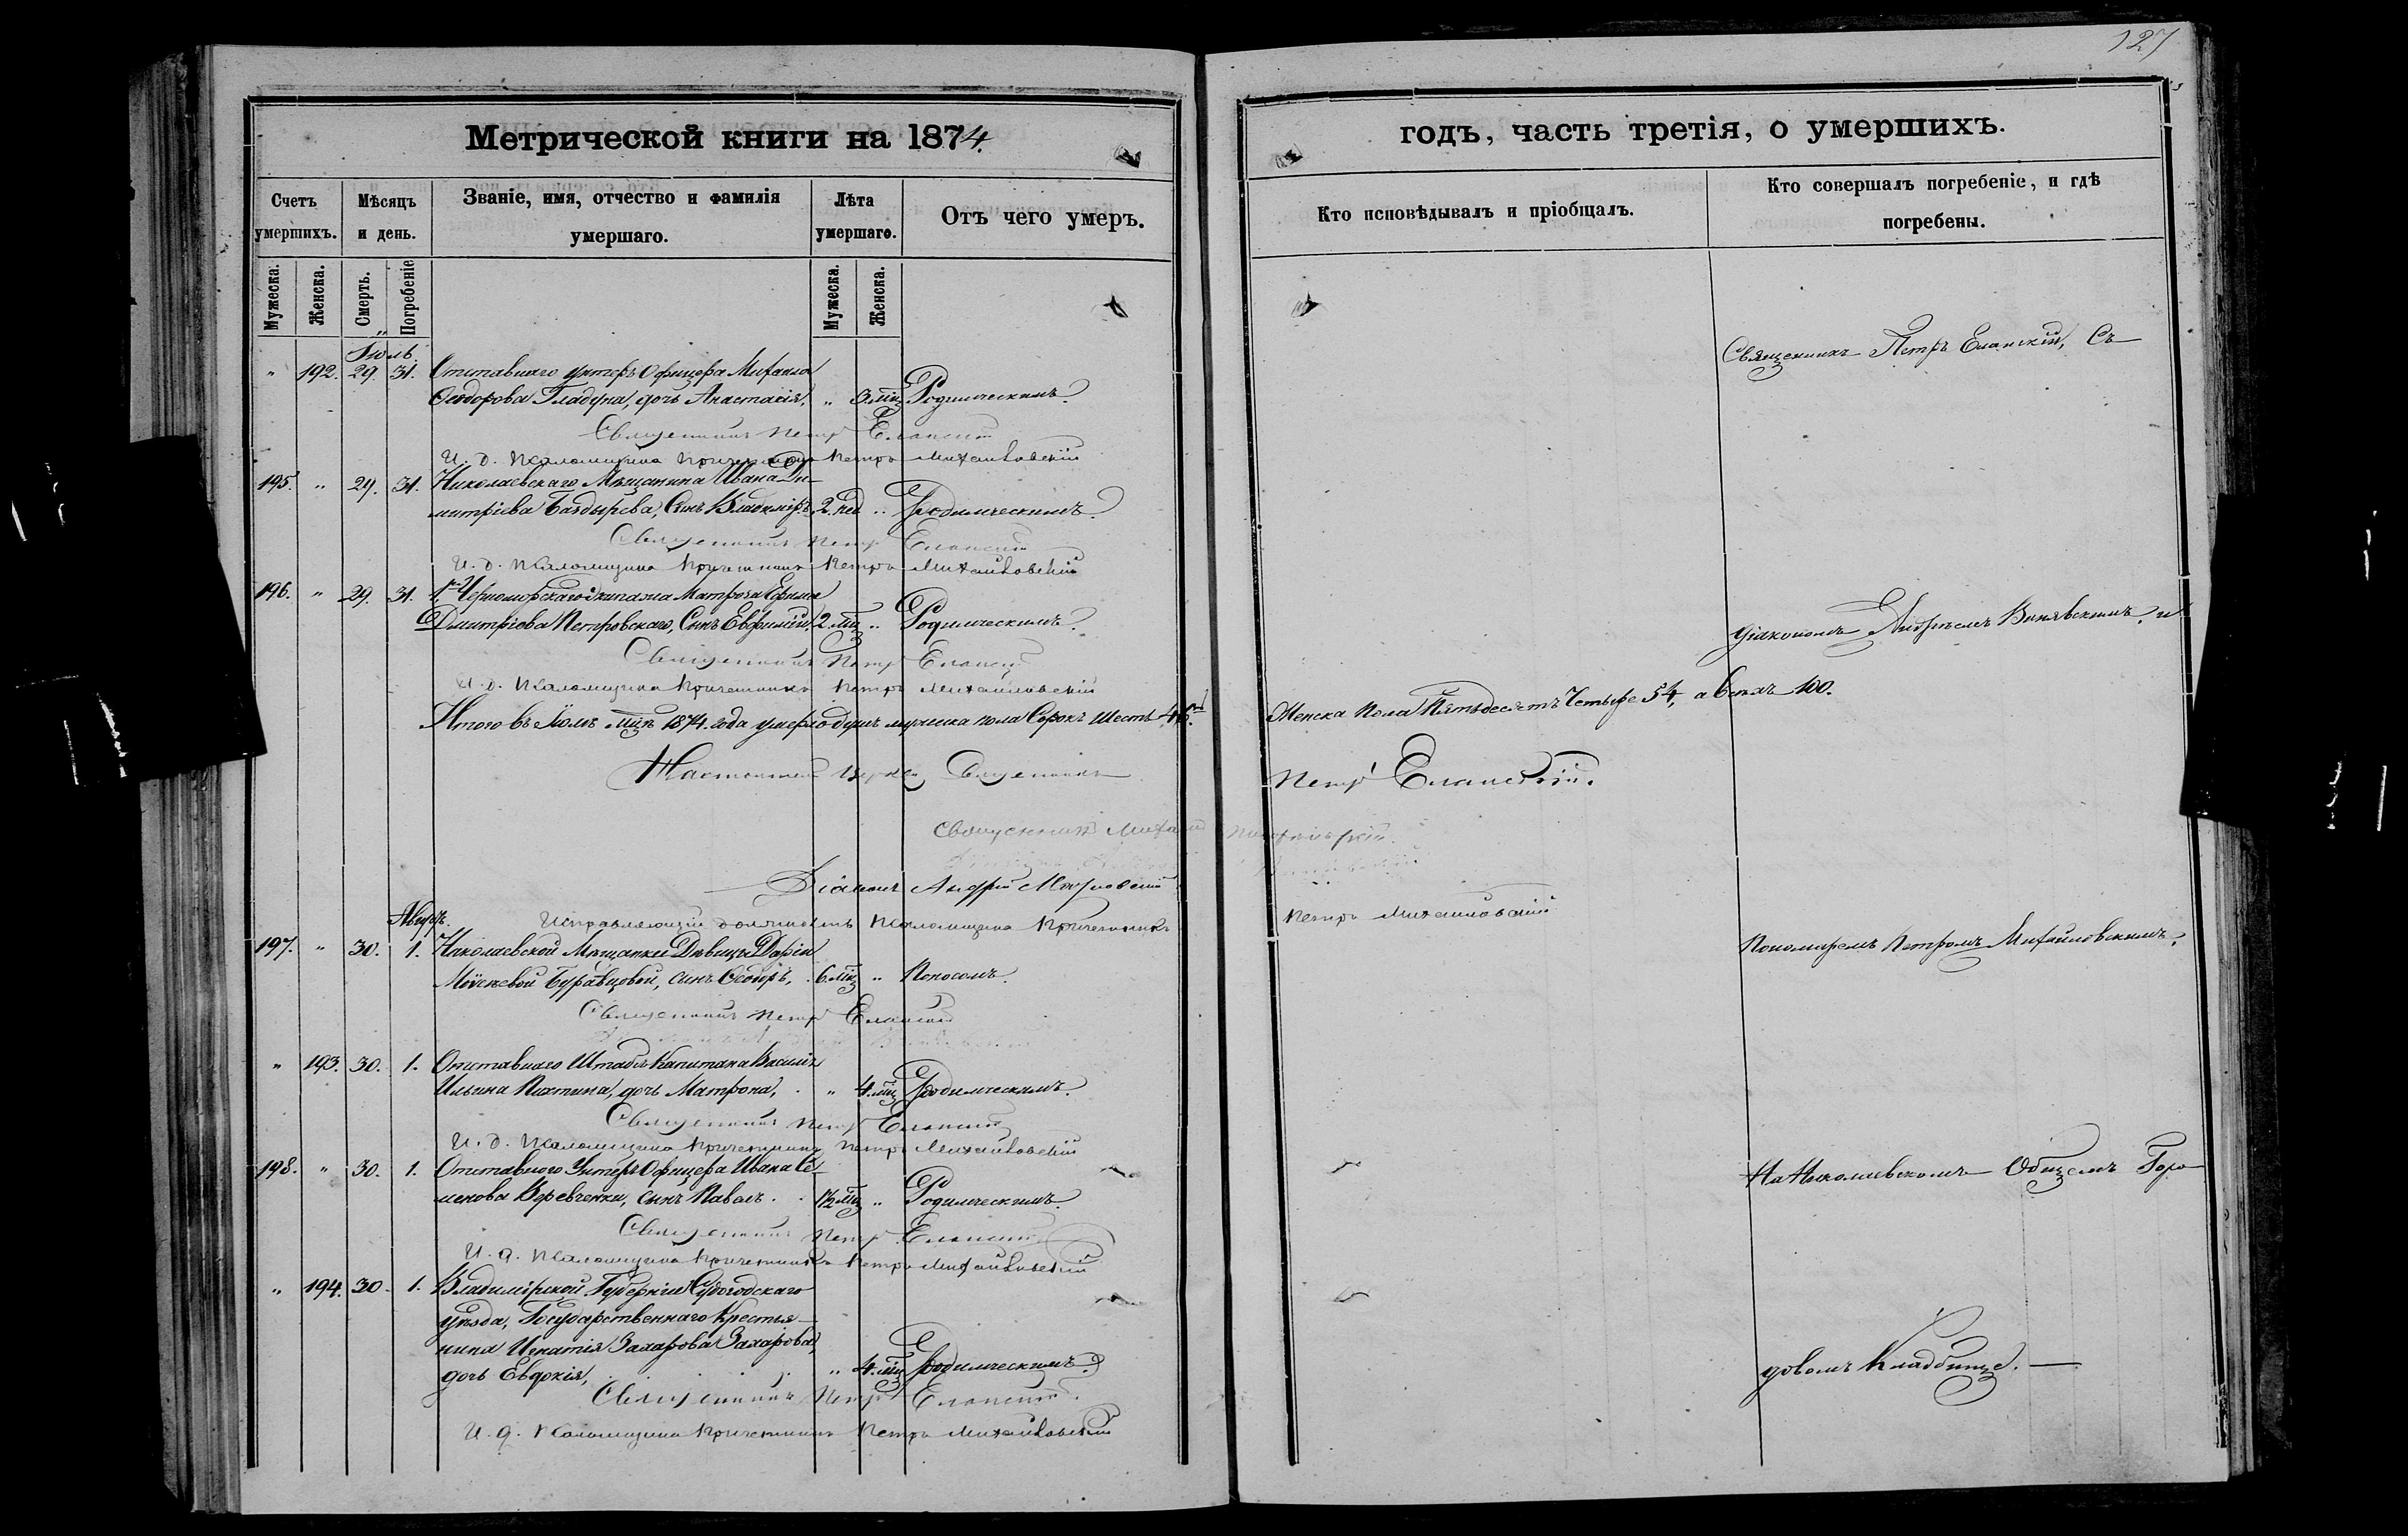 127
Метрической книги на 1874.
годъ, часть третія, о умершихъ.
Счетъ умершихъ.
Мѣсяцъ и день.
Званіе, имя, отчество и фамилія умершаго.
Лѣта умершаго.
Отъ чего умеръ.
Кто исповѣдывалъ и пріобщалъ.
Кто совершалъ погребеніе, и гдѣ погребены.
Мужеска.
Женска.
Смерть.
Погребеніе
Мужеска.
Женска.
Іюль.
" 192. 29. 31. Отставнаго унтеръ Офицера Михаила
Ѳеодорова Гладуна, дочь Анастасія, " 3. мц Родимческимъ.
Священникъ Петръ Еланскій
И. д. Псаломщика Причетникъ Петръ Михайловскій
195. " 29. 31. Николаевскаго Мѣщанина Ивана Ди-
митріева Сынъ Владиміръ 2. нед " Родимческимъ.
Священникъ Петръ Еланскій
И. д. Псаломщика Причетникъ Петръ Михайловскій
196. " 29. 31. 1го Черноморскаго Экипажа Матроса Ефима
Дмитріева Петровскаго, Сынъ Евфимій, 2 мц " Родимческимъ.
Священникъ Петръ Еланскій
И. д. Псаломщика Причетникъ Петръ Михайловскій
Итого въ Іюлѣ мцѣ 1874. года умерло душъ мужеска пола Сорокъ Шесть 46.
Женска Пола Пятьдесятъ Четыре 54, а всѣхъ 100.
Настоятель Церкви Священникъ
Петръ Еланскій.
Священникъ Михаилъ
Діаконъ Андрей
Исправляющій должность Псаломщика Причетникъ
Петръ Михайловскій
Августъ
197. " 30. 1. Николаевской Мѣщанки Дѣвицы Даріи
Моисѣевой Буравцовой, сынъ Ѳеодоръ, 6 мц " Поносомъ.
Священникъ Петръ Еланскій
" 193. 30. 1. Отставнаго Штабсъ Капитана Василія
Ильина дочь Матрона, " 4. мц Родимческимъ.
Священникъ Петръ Еланскій
И. д. Псаломщика Причетникъ Петръ Михайловскій
198. " 30. 1. Отставнаго Унтеръ Офицера Ивана Се-
менова Веревченки, сынъ Павелъ. 1½ мц " Родимческимъ.
Священникъ Петръ Еланскій
И. д. Псаломщика Причетникъ Петръ Михайловскій
" 194. 30. 1. Владимірской Губерніи Судогодскаго
уѣзда, Государственнаго Крестья-
нина Игнатія Захарова Захарова,
дочь Евдокія, " 4. мц Родимческимъ.
Священникъ Петръ Еланскій.
И. д. Псаломщика Причетникъ Петръ Михайловскій
Священникъ Петръ Еланскій, Съ
діакономъ Андреемъ и
Пономаремъ Петромъ Михайловскимъ,
На Николаевскомъ Общемъ Горо-
довомъ Кладбищѣ.